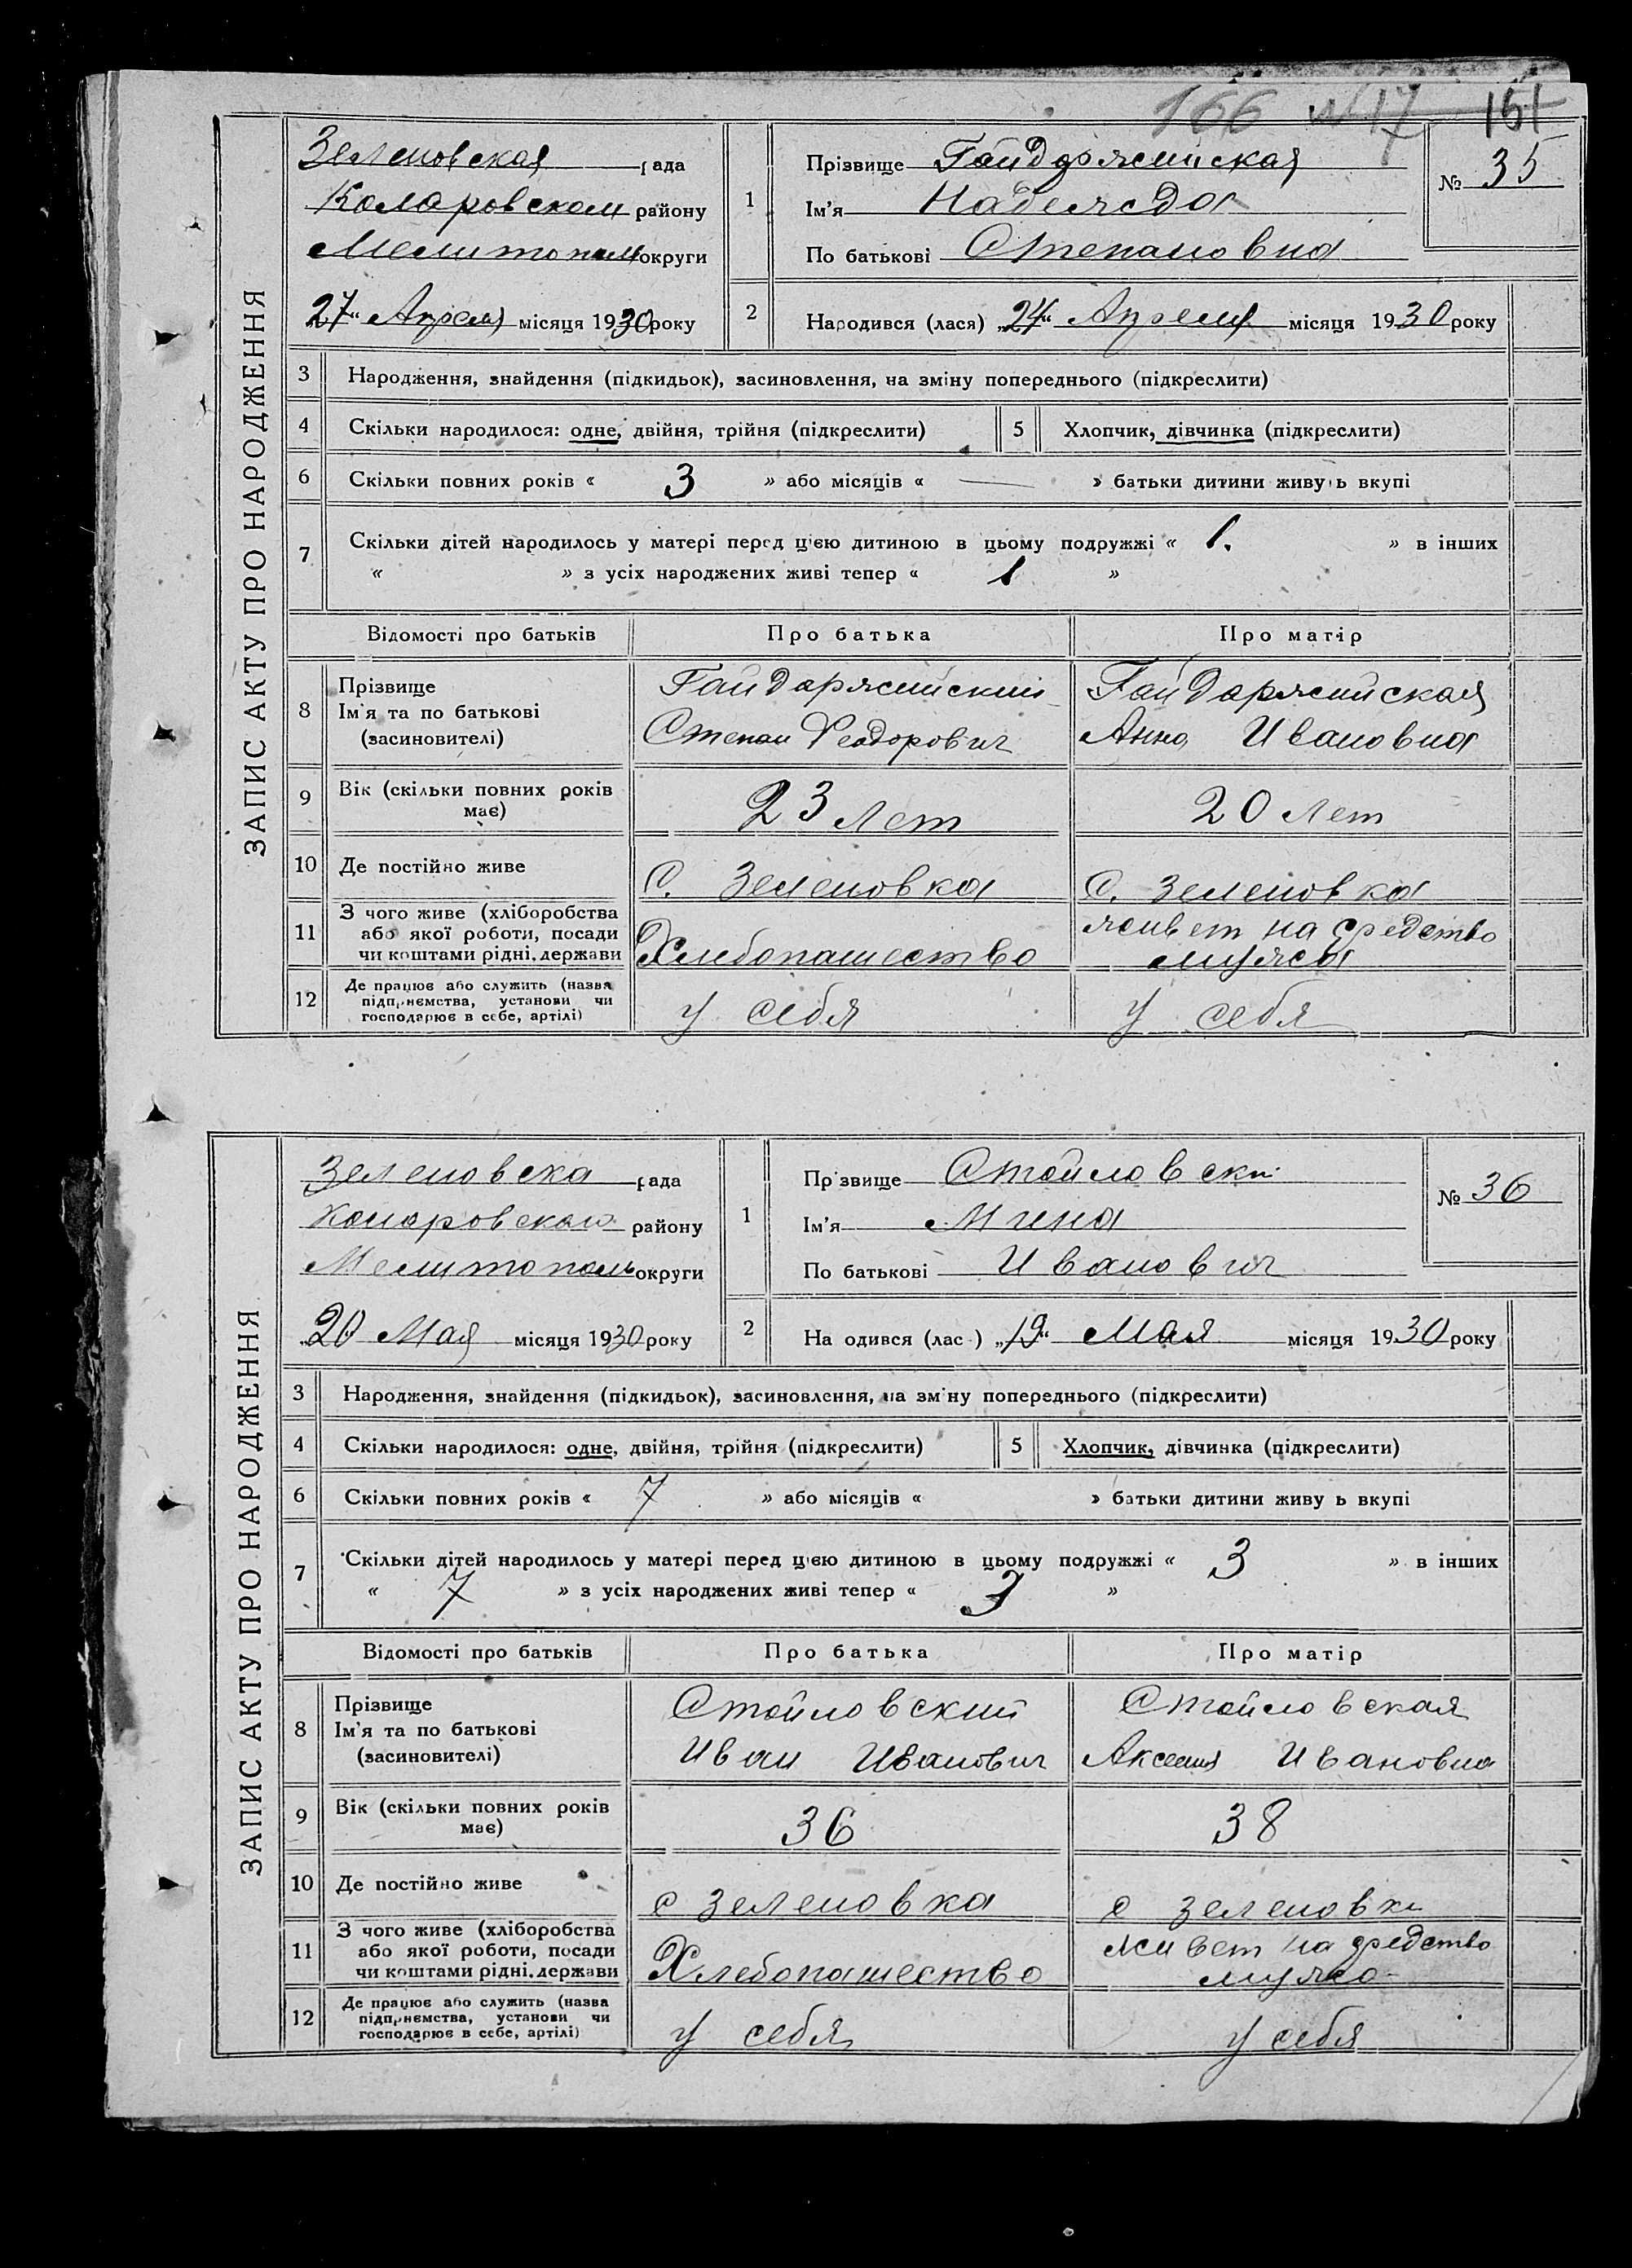 166 №17 161
ЗАПИС АКТУ ПРО НАРОДЖЕННЯ
Зеленовская рада
Коларовском району
Мелитопол округи
„27“ Апреля місяця 1930 року
1
Прізвище Гайдаржийская
Ім'я Надежда
По батькові Степановна
№ 35
2
Народився (лася) „24“ Апреля місяця 1930 року
3 Народження, знайдення (підкидьок), засиновлення, на зміну попереднього (підкреслити)
4 Скільки народилося: одне, двійня, трійня (підкреслити) 5 Хлопчик, дівчинка (підкреслити)
6 Скільки повних років « 3 » або місяців « — » батьки дитини живуть вкупі
7 Скільки дітей народилось у матері перед цією дитиною в цьому подружжі « 1. » в інших
« » з усіх народжених живі тепер « 1 »
Відомості про батьків Про батька Про матір
8 Прізвище
Ім'я та по батькові
(засиновителі)
Гайдаржийский
Степан Феодорович
Гайдаржийская
Анна Ивановна
9 Вік (скільки повних років
має)
23 лет
20 лет
10 Де постійно живе
С. Зеленовка
С. Зеленовка
11 З чого живе (хліборобства
або якої роботи, посади
чи коштами рідні, держави
Хлебопашество
живет на средство
мужа
12 Де працює або служить (назва
підприємства, установи чи
господарює в себе, артілі)
у себя
у себя
ЗАПИС АКТУ ПРО НАРОДЖЕННЯ
Зеленовска рада
Коларовского району
Мелитополь округи
„20 Мая місяця 1930 року
1
Прізвище Стойловски
Ім'я Мина
По батькові Иванович
№ 36
2
Народився (лас ) „19“ Мая місяця 1930 року
3 Народження, знайдення (підкидьок), засиновлення, на зміну попереднього (підкреслити)
4 Скільки народилося: одне, двійня, трійня (підкреслити) 5 Хлопчик, дівчинка (підкреслити)
6 Скільки повних років « 7 » або місяців « » батьки дитини живуть вкупі
7 Скільки дітей народилось у матері перед цією дитиною в цьому подружжі « 3 » в інших
« 7 » з усіх народжених живі тепер « 3 »
Відомості про батьків Про батька Про матір
8 Прізвище
Ім'я та по батькові
(засиновителі)
Стойловский
Иван Иванович
Стойловская
Аксения Ивановна
9 Вік (скільки повних років
має)
36
38
10 Де постійно живе
с Зеленовка
с Зеленовка
11 З чого живе (хліборобства
або якої роботи, посади
чи коштами рідні, держави
Хлебопашество
живет на средство
мужа
12 Де працює або служить (назва
підприємства, установи чи
господарює в себе, артілі)
у себя
у себя